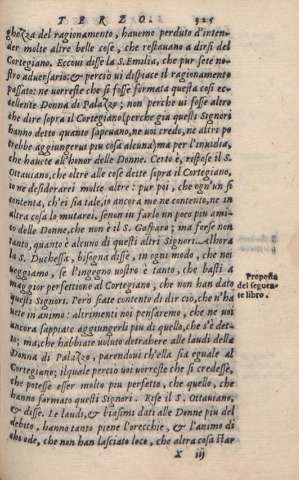 TERZO. 325
ghezza del ragionamento, hauemo perduto d'inten-
der molte altre belle cose, che restauano a dirsi del
Cortegiano. Eccoui disse la S. Emilia, che pur sete no-
stro aduersario: & perciò ui dispiace il ragionamento
passato: ne uorreste che si fosse formata questa cosi ec-
cellente Donna di Palazzo; non perche ui fosse altro
che dire sopra il Cortegiano (perche gia questi Signori
hanno detto quanto sapeuano, ne uoi credo, ne altri po
trebbe aggiungerui piu cosa alcuna) ma per l'inuidia,
che hauete all'honor delle Donne. Certo è, rispose il S.
Ottauiano, che oltre alle cose dette sopra il Cortegiano,
io ne desiderarei molte altre: pur poi, che ogn'un si
contenta, ch'ei sia tale, io ancora me ne contento, ne in
altra cosa lo mutarei, senon in farlo un poco piu ami-
co delle Donne, che non è il S. Gasparo; ma forse non
tanto, quanto è alcuno di questi altri Signori. Alhora
la S. Duchessa, bisogna disse, in ogni modo, che noi
ueggiamo, se l'ingegno uostro è tanto, che basti a
maggior perfettione al Cortegiano, che non han dato
questi Signori. Però siate contento di dir ciò, che n'ha
uete in animo: altrimenti noi pensaremo, che ne uoi
ancora sappiate aggiungerli piu di quello, che s'è det-
to; ma, che habbiate uoluto detrahere alle laudi della
Donna di Palazzo, parendoui ch'ella sia eguale al
Cortegiano; ilquale perciò uoi uorreste che si credesse,
che potesse esser molto piu perfetto, che quello, che
hanno formato questi Signori. Rise il S. Ottauiano,
& disse. Le laudi, & biasimi dati alle Donne piu del
debito, hanno tanto piene l'orecchie, & l'animo di
chi ode, che non han lasciato loco, che altra cosa star
X iij
Proposta
del seguen
te libro.